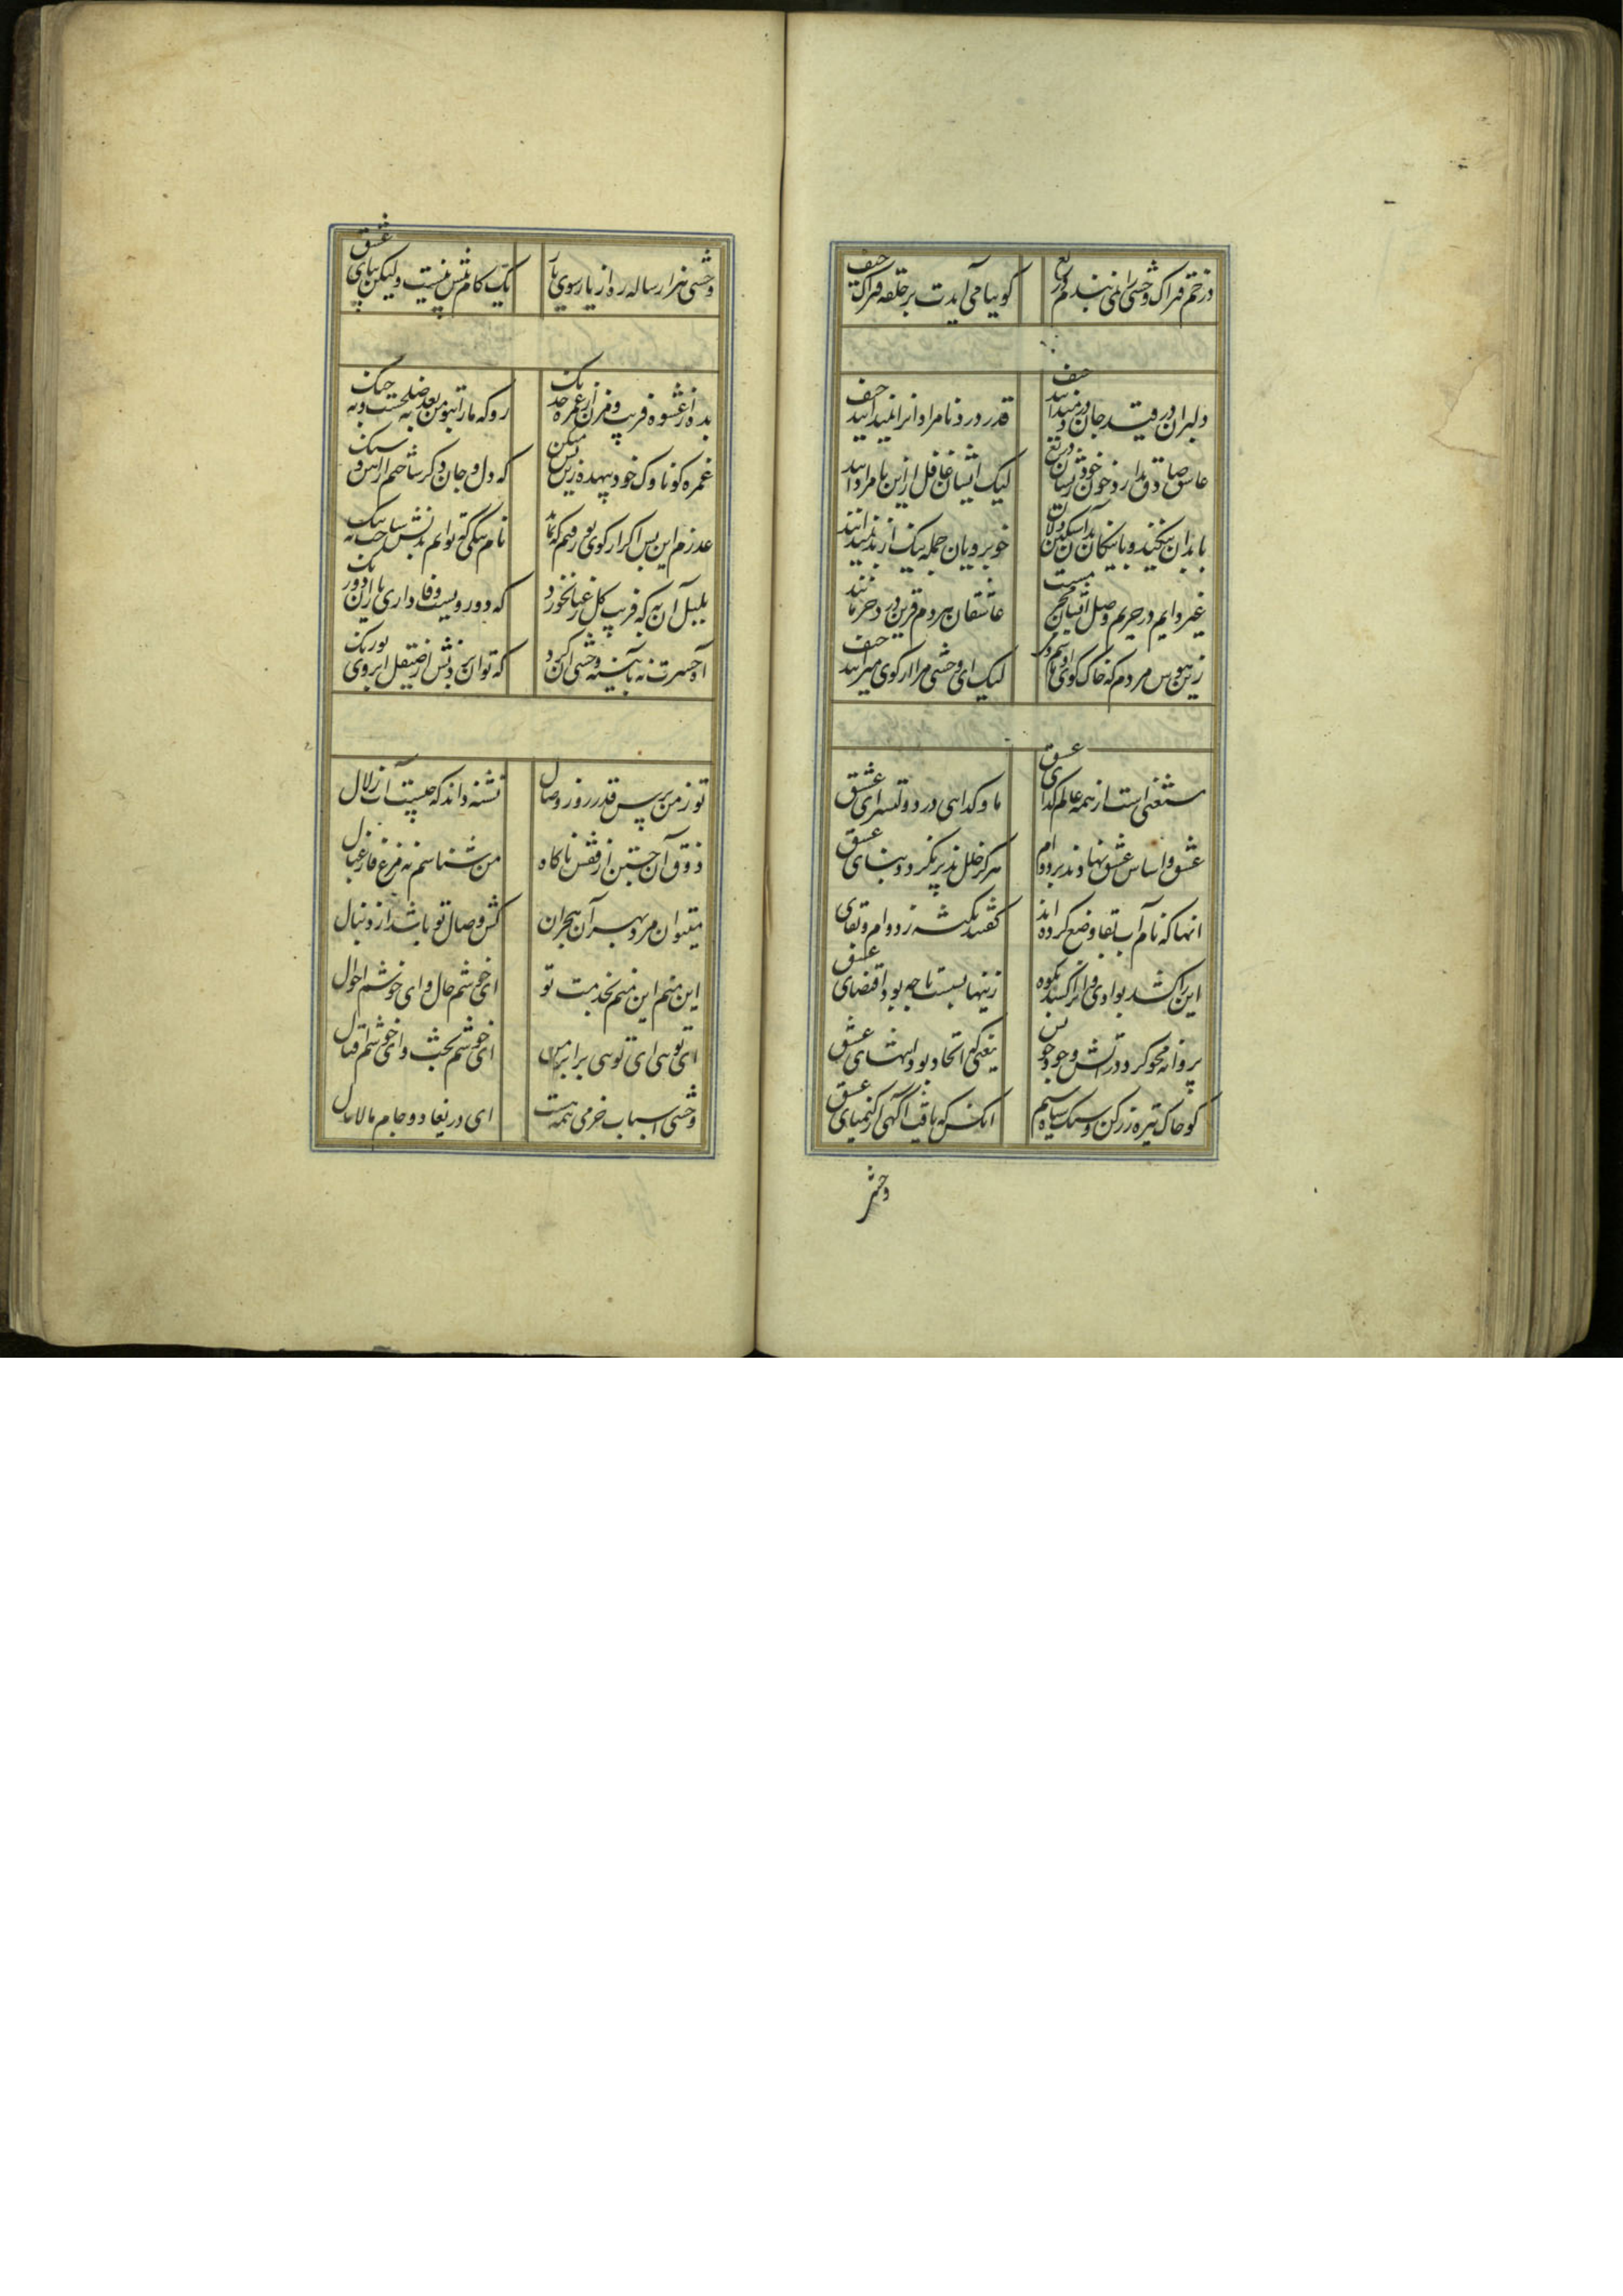 در خم فتراک وحشی را نمی بندد دریغ
گوییا می آیدت بر حلقه فتراک حیف
دلبران در قید جان دردمندانند حیف
قدر درد نامرادان را نمیدانند حیف
عاشق صادق ندارد خون خوش زیشان دریغ
لیک ایشان غافل از این نامردانند حیف
با بدان نیکند و با نیکان بد
خوبرویان جمله نیک از بد نمیدانند
غیر دایم در حریم وصل ایشان محترم
عاشقان هر دم قرین درد حرمانند
زین هوس مردم که خاک کوی او باشم
لیک ای وحشی مرا از کوی میرانند حیف
مستغنی است از همه عالم گدای عشق
ما و گدایی در دولتسرای عشق
عشق و اساس عشق نهادند بر دوام
هرگز خلل پذیر نگردد بنای عشق
آنها که نام آب بقا وضع کرده اند
گفتند نکته ز دوام و بقای عشق
این را کشد بوادی و آنرا کشد بکوه
زینها بسست تا چه بود اقتضای عشق
پروانه محو کرد در آتش وجود خویش
یعنی که اتحاد بود انتهای عشق
کو خاک تیره زر کن و سنگ سیاه سیم
آنکس که یافت آگهی از کیمیای عشق
وحشی
وحشی هزار ساله ره از یار سوی یار
یک گام بیش نیست ولیکن بپای عشق
بده از عشوه فریب و مزن از غمزه خدنگ
رو که ما را بتو من بعد نه صلحست و نه جنگ
غمزه گو ناوک خود بیهده زین بیش مکن
که دل و جان دگر ساختم از آهن و سنگ
عذرم این بس اگر از کوی تو رفتم که نماند
نام نیکی که توانم بدلش ساخت به ننگ
بلبل آن به که فریب گل رعنا نخورد
که دو روزیست وفاداری یاران دو رنگ
آه حسرت نه بآیینه وحشی آن کرد
که توان بردنش از صیقل ابروی تو رنگ
تو ز من پرس قدر روز وصال
تشنه داند که چیست آب زلال
ذوق آن جستن از قفس ناگاه
من شناسم نه مرغ فارغبال
میتوان مرد بهر آن هجران
کش وصال تو باشد از دنبال
این منم این منم بخدمت تو
ای خوشم حال و ای خوشم احوال
این تویی این تویی برابر من
ای خوشم بخت و ای خوشم اقبال
وحشی اسباب خرمی همه هست
ای دریغا دو جام مالامال